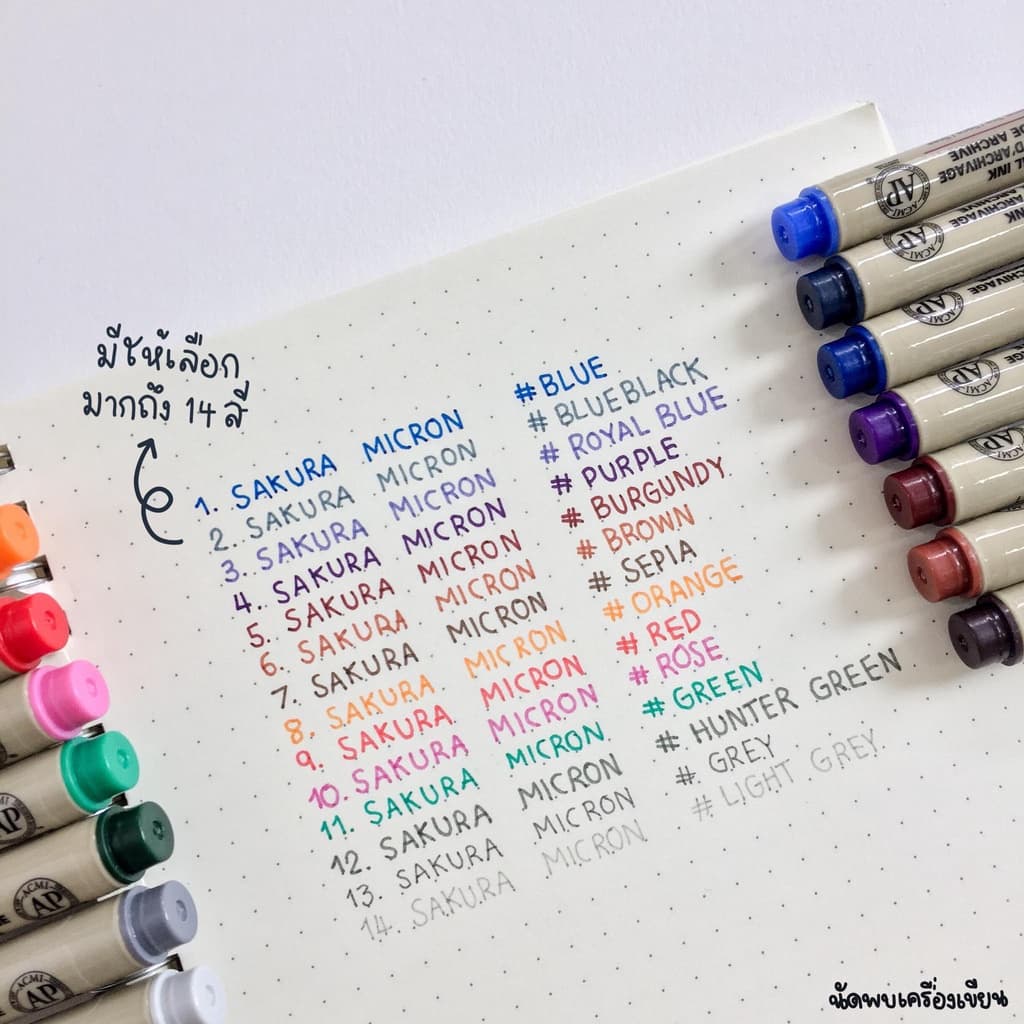 มีให้เลือก
มากถึง 14 สี
1. SAKURA MICRON #BLUE
2. SAKURA MICRON #BLUEBLACK
3. SAKURA MICRON #ROYAL BLUE
4. SAKURA MICRON #PURPLE
5. SAKURA MICRON #BURGUNDY
6. SAKURA MICRON #BROWN
7. SAKURA MICRON #SEPIA
8. SAKURA MICRON #ORANGE
9. SAKURA MICRON #RED
10. SAKURA MICRON #ROSE
11. SAKURA MICRON #GREEN
12. SAKURA MICRON #HUNTER GREEN
13. SAKURA MICRON #GREY
14. SAKURA MICRON #LIGHT GREY
DE ARCHIVE
D'ARCHIVAGE
INK
AP
ACMI
ARCHIVAGE
AP
ACMI
AP
ACMI
AP
ACMI
AP
นัดพบเครื่องเขียน